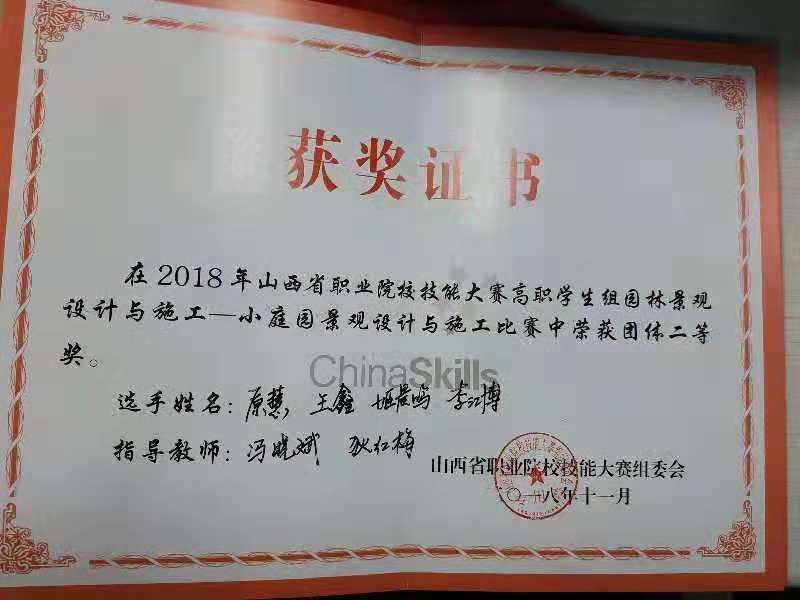 获奖证书
在2018年山西省职业院校技能大赛高职学生组园林景观
设计与施工—小庭园景观设计与施工比赛中荣获团体二等
奖。
ChinaSkills
选手姓名：原慧 王鑫 李江博
指导教师：冯晓斌 狄红梅
山西省职业院校技能大赛组委会
二〇一八年十一月